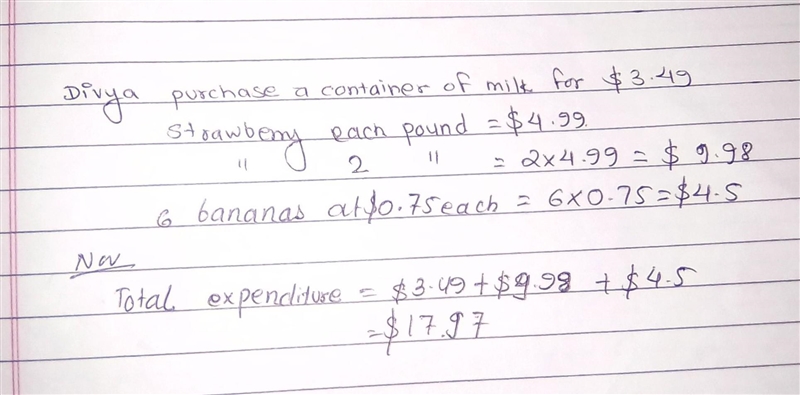 Divya purchase a container of milk for $3.49
Strawberry each pound = $4.99.
" 2 " = 2×4.99 = $ 9.98
6 bananas at $0.75 each = 6×0.75 = $4.5
Now
Total expenditure = $3.49 + $9.98 + $4.5
= $17.97